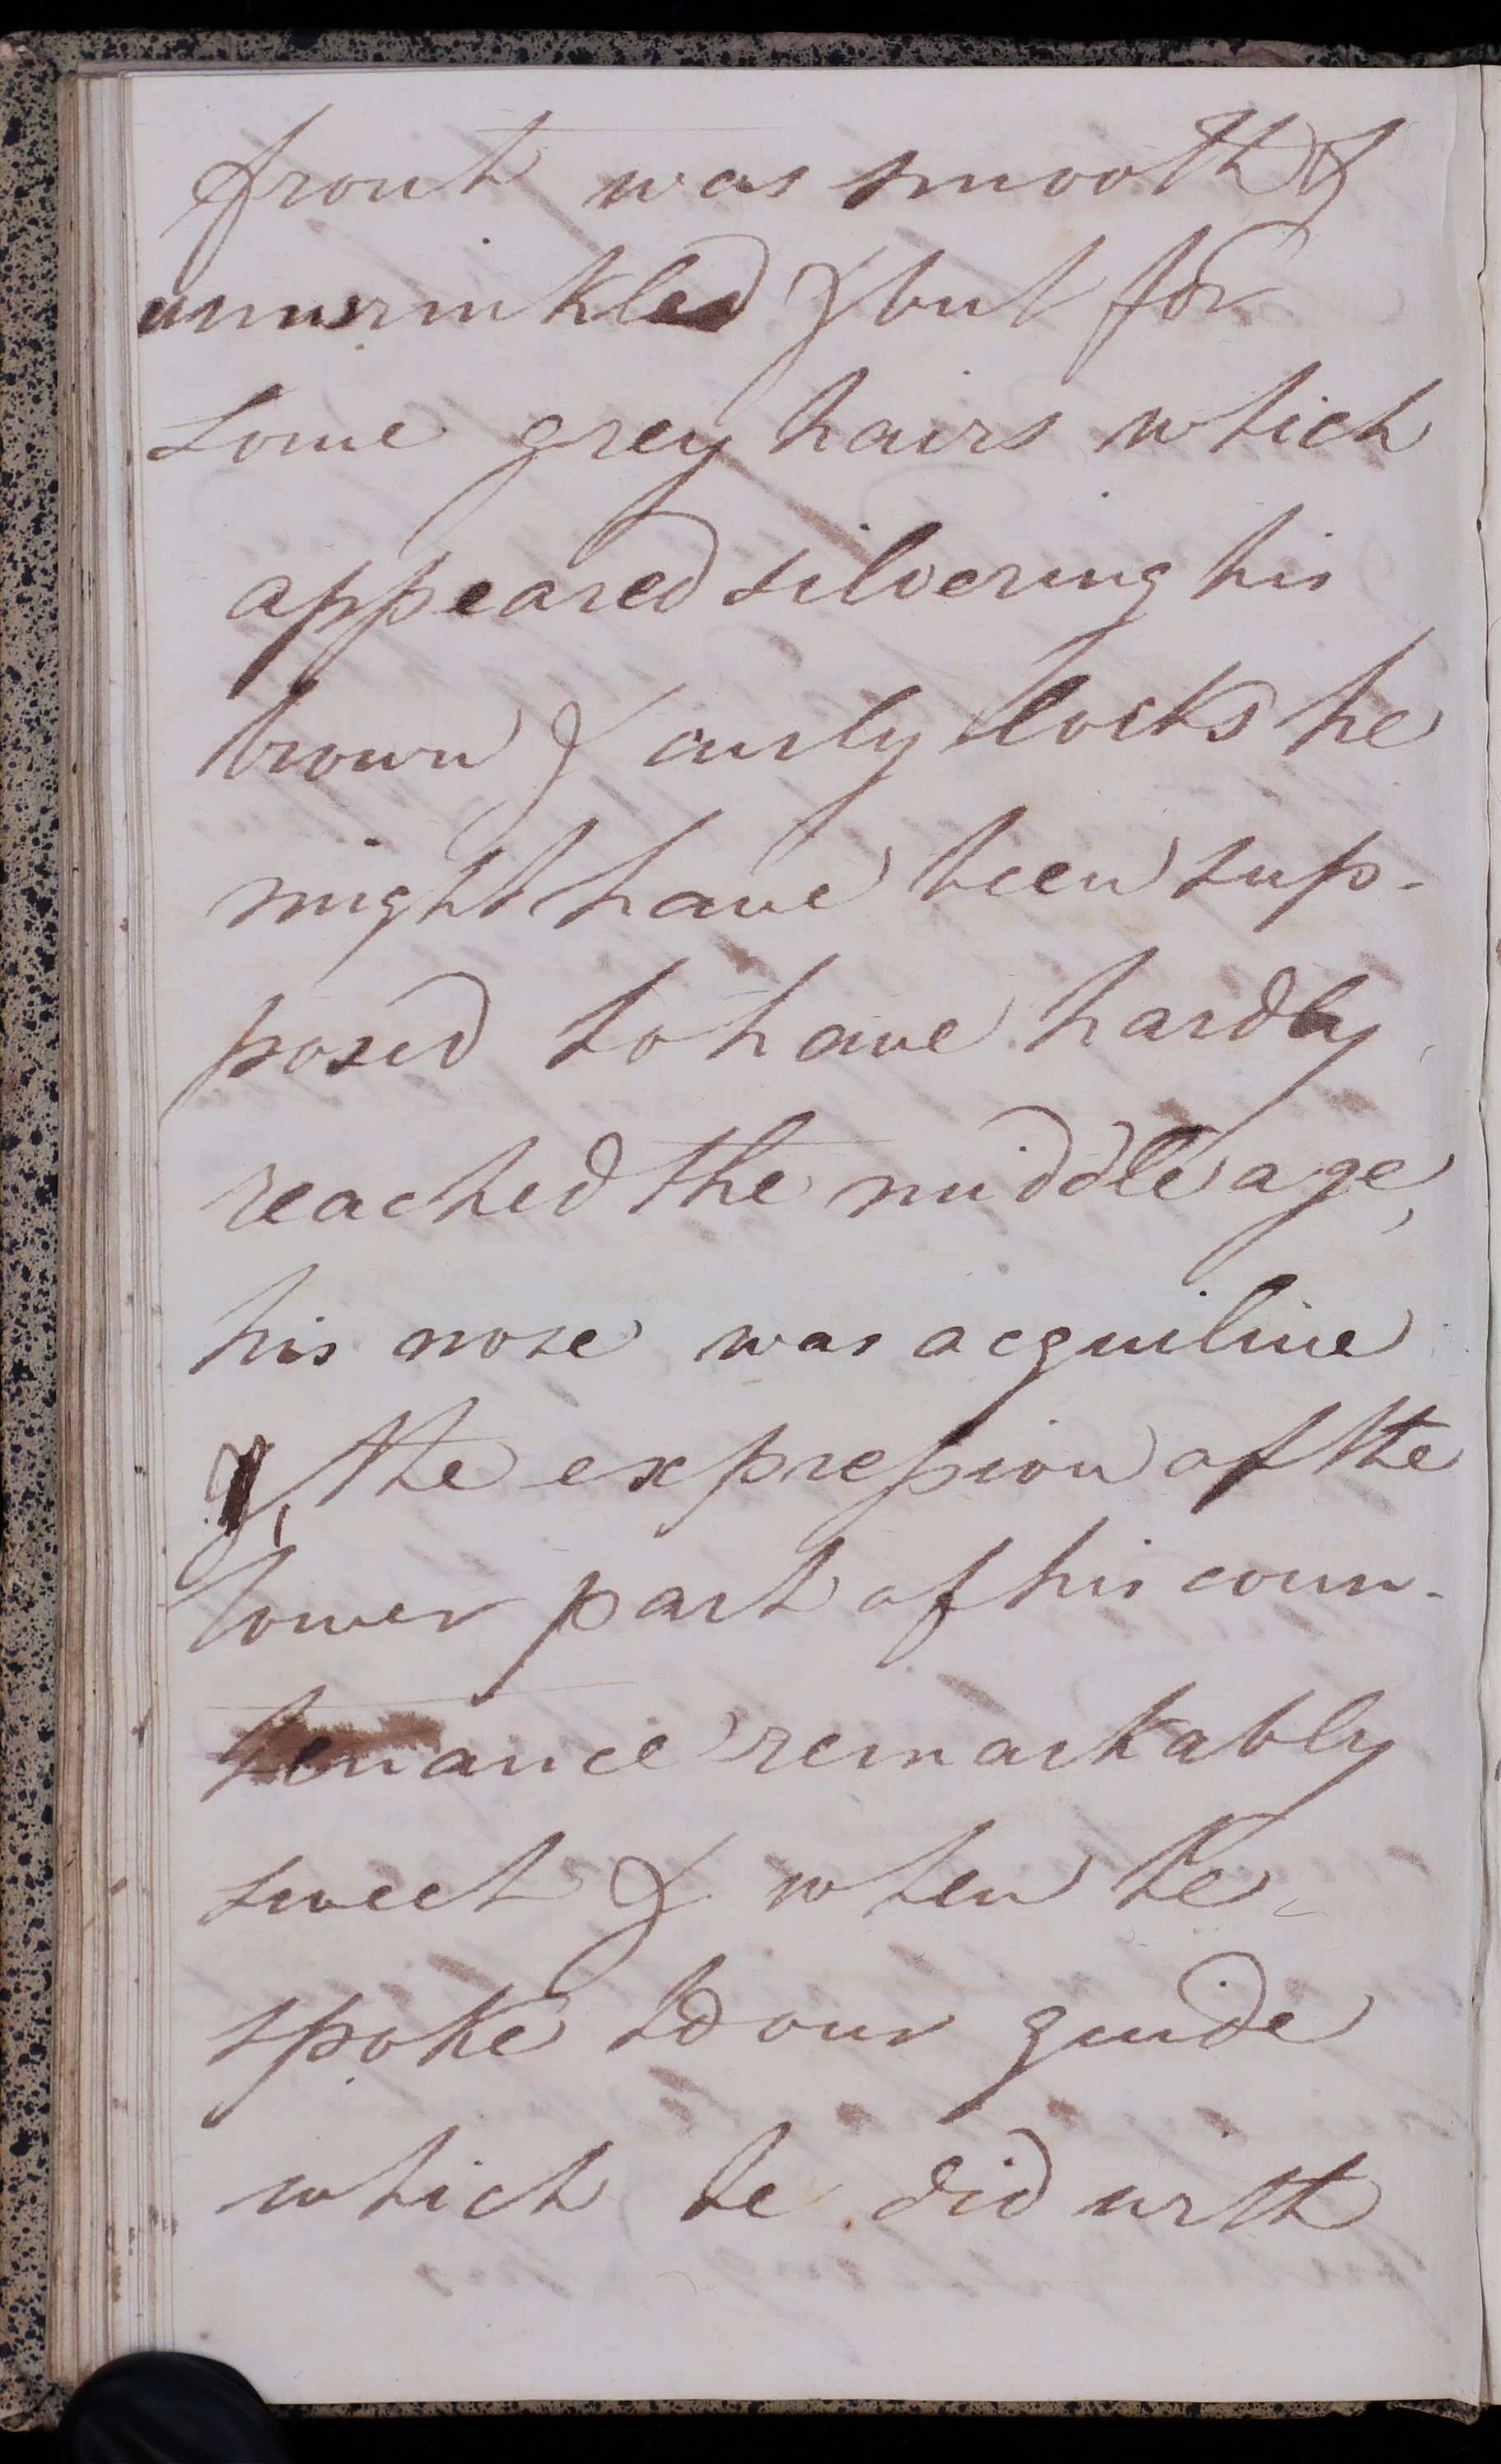 front was smooth &
unwrinkled & but for
some grey hairs which
appeared silvering his
brown & curly locks he
might have been sup-
posed to have hardly
reached the middle age,
his nose was acquiline
& the expression of the
lower part of his coun-
tenance remarkably
sweet & when he
spoke to our guide
which he did with